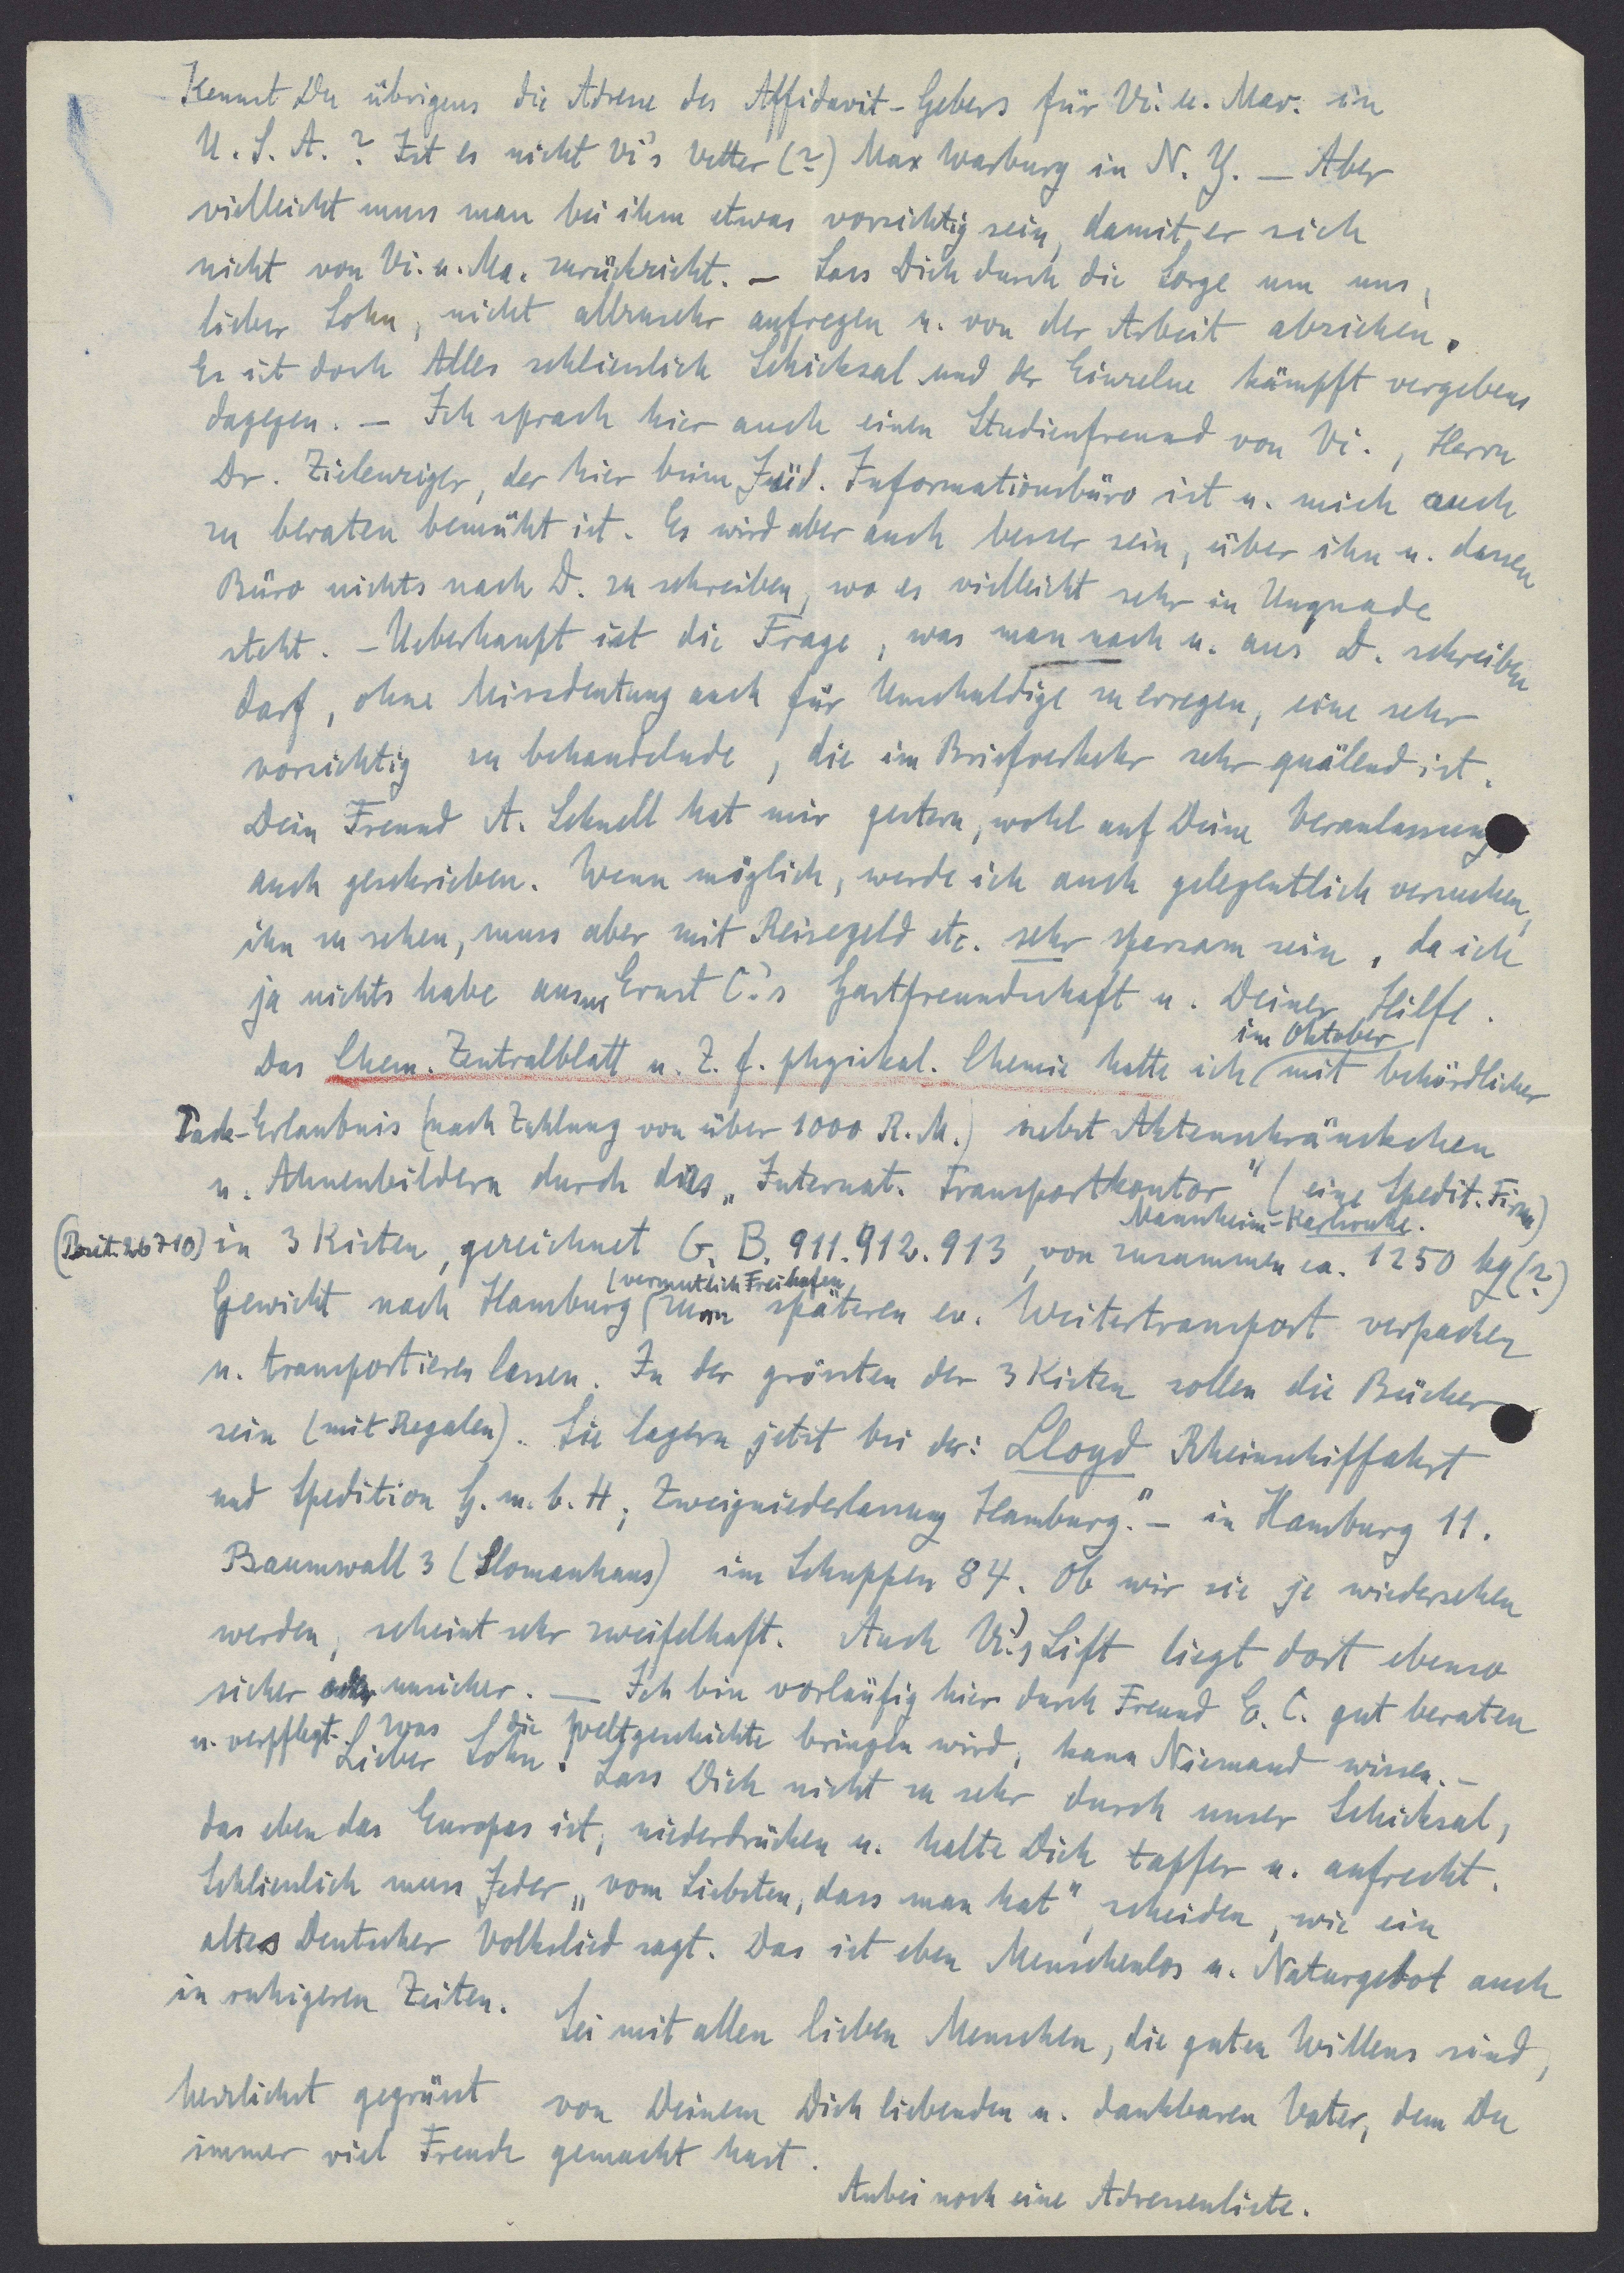 Kennst Du übrigens die Adresse des Affidavit-Gebers für Vi. u. Mar. in
U.S.A.? Ist es nicht Vi's Vetter (?) Max Warburg in N.Y. — Aber
vielleicht muss man bei ihm etwas vorsichtig sein, damit er sich
nicht von Vi. u. Ma. zurückzieht. — Lass Dich durch die Sorge um uns,
lieber Sohn, nicht allzusehr aufregen u. von der Arbeit abziehen.
Es ist doch Alles schliesslich Schicksal und der Einzelne kämpft vergebens
dagegen. — Ich sprach hier auch einen Studienfreund von Vi., Herrn
Dr. Zielenziger, der hier beim Jüd. Informationsbüro ist u. mich auch
zu beraten bemüht ist. Es wird aber auch besser sein, über ihn u. dessen
Büro nichts nach D. zu schreiben, wo es vielleicht sehr in Ungnade
steht. — Ueberhaupt ist die Frage, was man nach u. aus D. schreiben
darf, ohne Missdeutung auch für Unschuldige zu erregen, eine sehr
vorsichtig zu behandelnde, die im Briefverkehr sehr quälend ist.
Dein Freund A. Schnell hat mir gestern, wohl auf Deine Veranlassung,
auch geschrieben. Wenn möglich, werde ich auch gelegentlich versuchen,
ihn zu sehen, muss aber mit Reisegeld etc. sehr sparsam sein, da ich
ja nichts habe ausser Ernst C.'s Gastfreundschaft u. Deiner Hilfe.
im Oktober
Das Chem. Zentralblatt u. Z. f. physikal. Chemie hatte ich mit behördlicher
Pack-Erlaubnis (nach Zahlung von über 1000 R.M.) nebst Aktenschränkchen
u. Ahnenbildern durch das „Internat. Transportkontor" (eine Spedit. Firma)
Mannheim-Karlsruhe.
(Posit. 26710) in 3 Kisten, gezeichnet G. B. 911. 912. 913, von zusammen ca. 1250 kg (?)
(vermutlich Freihafen
Gewicht nach Hamburg zum späteren ev. Weitertransport verpacken
u. transportieren lassen. In der grössten der 3 Kisten sollen die Bücher
sein (mit Regalen). Sie lagern jetzt bei der: Lloyd Rheinschiffahrt
und Spedition G.m.b.H., Zweigniederlassung Hamburg." — in Hamburg 11.
Baumwall 3 (Slomanhaus) im Schuppen 84. Ob wir sie je wiedersehen
werden, scheint sehr zweifelhaft. Auch Vi.'s Lift liegt dort ebenso
sicher oder unsicher. — Ich bin vorläufig hier durch Freund E. C. gut beraten
u. verpflegt. Was die Weltgeschichte bringen wird, kann Niemand wissen. —
Lieber Sohn! Lass Dich nicht zu sehr durch unser Schicksal,
das eben das Europas ist, niederdrücken u. halte Dich tapfer u. aufrecht.
Schliesslich muss Jeder „vom Liebsten, dass man hat", scheiden, wie ein
altes Deutscher Volkslied sagt. Das ist eben Menschenlos u. Naturgebot auch
in ruhigeren Zeiten.
Sei mit allen lieben Menschen, die guten Willens sind,
herzlichst gegrüsst von Deinem Dich liebenden u. dankbaren Vater, dem Du
immer viel Freude gemacht hast.
Anbei noch eine Adressenliste.